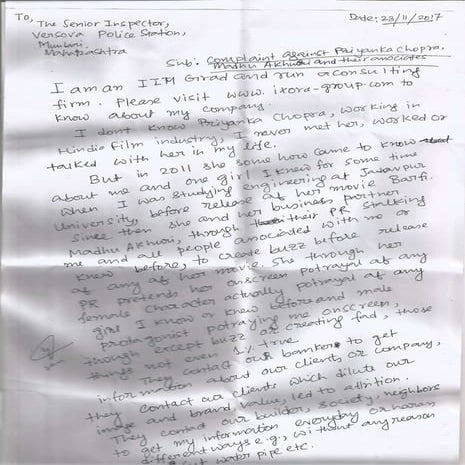 To,
The Senior Inspector,
Versova Police Station,
Mumbai,
Maharashtra
Date: 23/11/2017
Sub: Complaint against Priyanka Chopra,
Madhu Akhouri and their associates
I am an IIM Grad and run a consulting
firm. Please visit www.ixora-group.com to
know about my company.
I dont know Priyanka Chopra, working in
Hindie Film industry, I never met her, worked or
talked with her in my life.
But in 2011 she some how came to know
about me and one girl I knew for some time
when I was studying engineering at Jadavpur
University, before release of her movie Barfi.
Since then she and her business partner
Madhu Akhouri, through their PR stalking
me and all people associated with me or
knew before, to create buzz before release
of any of her movie. She through her
PR pretends her onscreen potrayal of any
female character actually potrayal of any
girl I know or knew before and male
protagonist potraying me onscreen,
though except buzz or creating fad, those
things not even 1% true.
They contact our bankers to get
information about our clients or company,
they contact our clients which dilute our
image and brand value, led to attrition.
They contact our builder, society, neighbors
to get my information everyday or harass
different ways e.g., without any reason
cut water pipe etc.